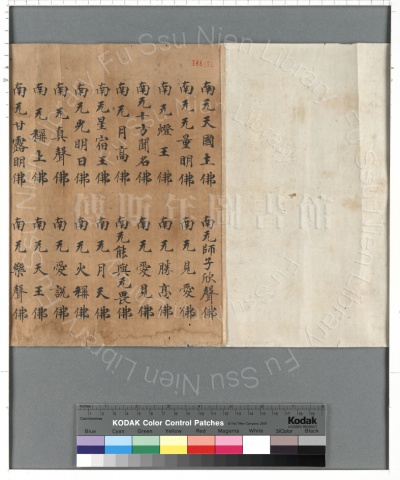 南无天國主佛　南无師子欣聲佛
南无无量明佛　南无見愛佛
南无燈王佛　南无勝佛
南无十方聞名佛　南无愛見佛
南无月高佛　南无能與无畏佛
南无星宿王佛　南无月天佛
南无光明日佛　南无火稱佛
南无真聲佛　南无愛說佛
南无稱上佛　南无天王佛
南无甘露明佛　南无樂聲佛
傅斯年圖書館
Fu Ssu Nien Library
KODAK Color Control Patches
Kodak
Blue Cyan Green Yellow Red Magenta White 3/Color Black